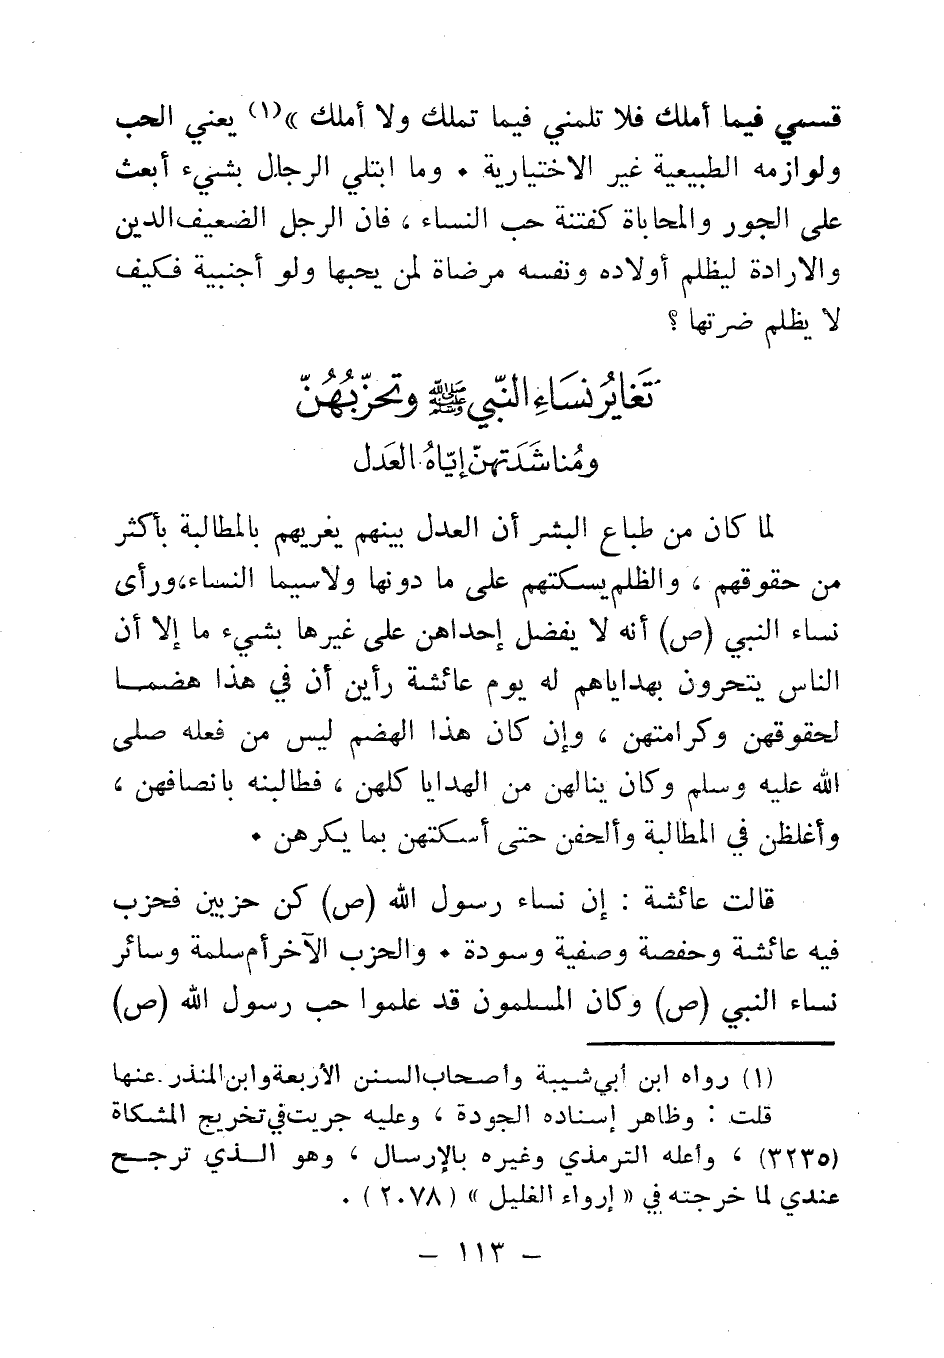 قسمي فيما أملك فلا تلمني فيما تملك ولا أملك »(١) يعني الحب
ولوازمه الطبيعية غير الاختيارية . وما ابتلي الرجال بشيء أبعث
على الجور والمحاباة كفتنة حب النساء ، فان الرجل الضعيف الدين
والارادة ليظلم أولاده ونفسه مرضاة لمن يحبها ولو أجنبية فكيف
لا يظلم ضرتها ؟
تَغَايُر نسَاءِ النّبي ﷺ وتحزّبُهُنّ
ومُناشَدَتهنّ إيّاهُ العَدل
لما كان من طباع البشر أن العدل بينهم يغريهم بالمطالبة بأكثر
من حقوقهم ، والظلم يسكتهم على ما دونها ولاسيما النساء، ورأى
نساء النبي (ص) أنه لا يفضل إحداهن على غيرها بشيء ما إلا أن
الناس يتحرون بهداياهم له يوم عائشة رأين أن في هذا هضمـــا
لحقوقهن وكرامتهن ، وإن كان هذا الهضم ليس من فعله صلى
الله عليه وسلم وكان ينالهن من الهدايا كلهن ، فطالبنه بانصافهن ،
وأغلظن في المطالبة وألحفن حتى أسكتهن بما يكرهن .
قالت عائشة : إن نساء رسول الله (ص) كن حزبين فحزب
فيه عائشة وحفصة وصفية وسودة . والحزب الآخر أم سلمة وسائر
نساء النبي (ص) وكان المسلمون قد علموا حب رسول الله (ص)
(١) رواه ابن أبي شيبة وأصحاب السنن الأربعة وابن المنذر . عنها
قلت : وظاهر إسناده الجودة ، وعليه جريت في تخريج المشكاة
(٣٢٣٥) ، وأعله الترمذي وغيره بالإرسال ، وهو الــذي ترجــح
عندي لما خرجته في « إرواء الغليل » (٢٠٧٨) .
– ١١٣ –